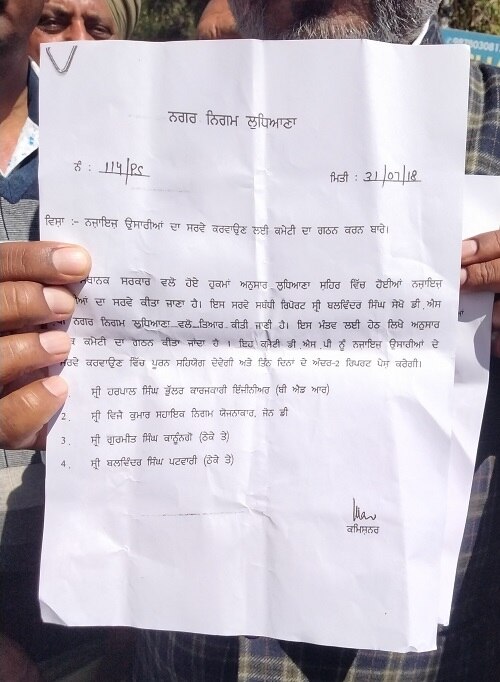 9878030811
ਨਗਰ ਨਿਗਮ ਲੁਧਿਆਣਾ
ਨੰ : 114/PC ਮਿਤੀ : 31/07/18
ਵਿਸ਼ਾ :- ਨਜ਼ਾਇਜ਼ ਉਸਾਰੀਆਂ ਦਾ ਸਰਵੇ ਕਰਵਾਉਣ ਲਈ ਕਮੇਟੀ ਦਾ ਗਠਨ ਕਰਨ ਬਾਰੇ।
ਸਰਕਾਰ ਵਲੋਂ ਹੋਏ ਹੁਕਮਾਂ ਅਨੁਸਾਰ ਲੁਧਿਆਣਾ ਸਹਿਰ ਵਿੱਚ ਹੋਈਆਂ ਨਜਾਇਜ਼
ਦਾ ਸਰਵੇ ਕੀਤਾ ਜਾਣਾ ਹੈ। ਇਸ ਸਰਵੇ ਸਬੰਧੀ ਰਿਪੋਰਟ ਸ੍ਰੀ ਬਲਵਿੰਦਰ ਸਿੰਘ ਸੇਖੋਂ ਡੀ.ਐਸ
ਨਗਰ ਨਿਗਮ ਲੁਧਿਆਣਾ ਵਲੋਂ ਤਿਆਰ ਕੀਤੀ ਜਾਣੀ ਹੈ। ਇਸ ਮੰਤਵ ਲਈ ਹੇਠ ਲਿਖੇ ਅਨੁਸਾਰ
ਕਮੇਟੀ ਦਾ ਗਠਨ ਕੀਤਾ ਜਾਂਦਾ ਹੈ । ਇਹ ਕਮੇਟੀ ਡੀ.ਐਸ.ਪੀ ਨੂੰ ਨਜਾਇਜ ਉਸਾਰੀਆਂ ਦੇ
ਸਰਵੇ ਕਰਵਾਉਣ ਵਿੱਚ ਪੂਰਨ ਸਹਿਯੋਗ ਦੇਵੇਗੀ ਅਤੇ ਤਿੰਨ ਦਿਨਾਂ ਦੇ ਅੰਦਰ-2 ਰਿਪਰਟ ਪੇਸ਼ ਕਰੇਗੀ।
ਸ੍ਰੀ ਹਰਪਾਲ ਸਿੰਘ ਭੁੱਲਰ ਕਾਰਜਕਾਰੀ ਇੰਜੀਨੀਅਰ (ਬੀ ਐਂਡ ਆਰ)
2. ਸ੍ਰੀ ਵਿਜੈ ਕੁਮਾਰ ਸਹਾਇਕ ਨਿਗਮ ਯੋਜਨਾਕਾਰ, ਜੋਨ ਡੀ
3. ਸ੍ਰੀ ਗੁਰਮੀਤ ਸਿੰਘ ਕਾਨੂੰਨਗੋ (ਠੇਕੇ ਤੇ)
4. ਸ੍ਰੀ ਬਲਵਿੰਦਰ ਸਿੰਘ ਪਟਵਾਰੀ (ਠੇਕੇ ਤੇ)
ਕਮਿਸ਼ਨਰ